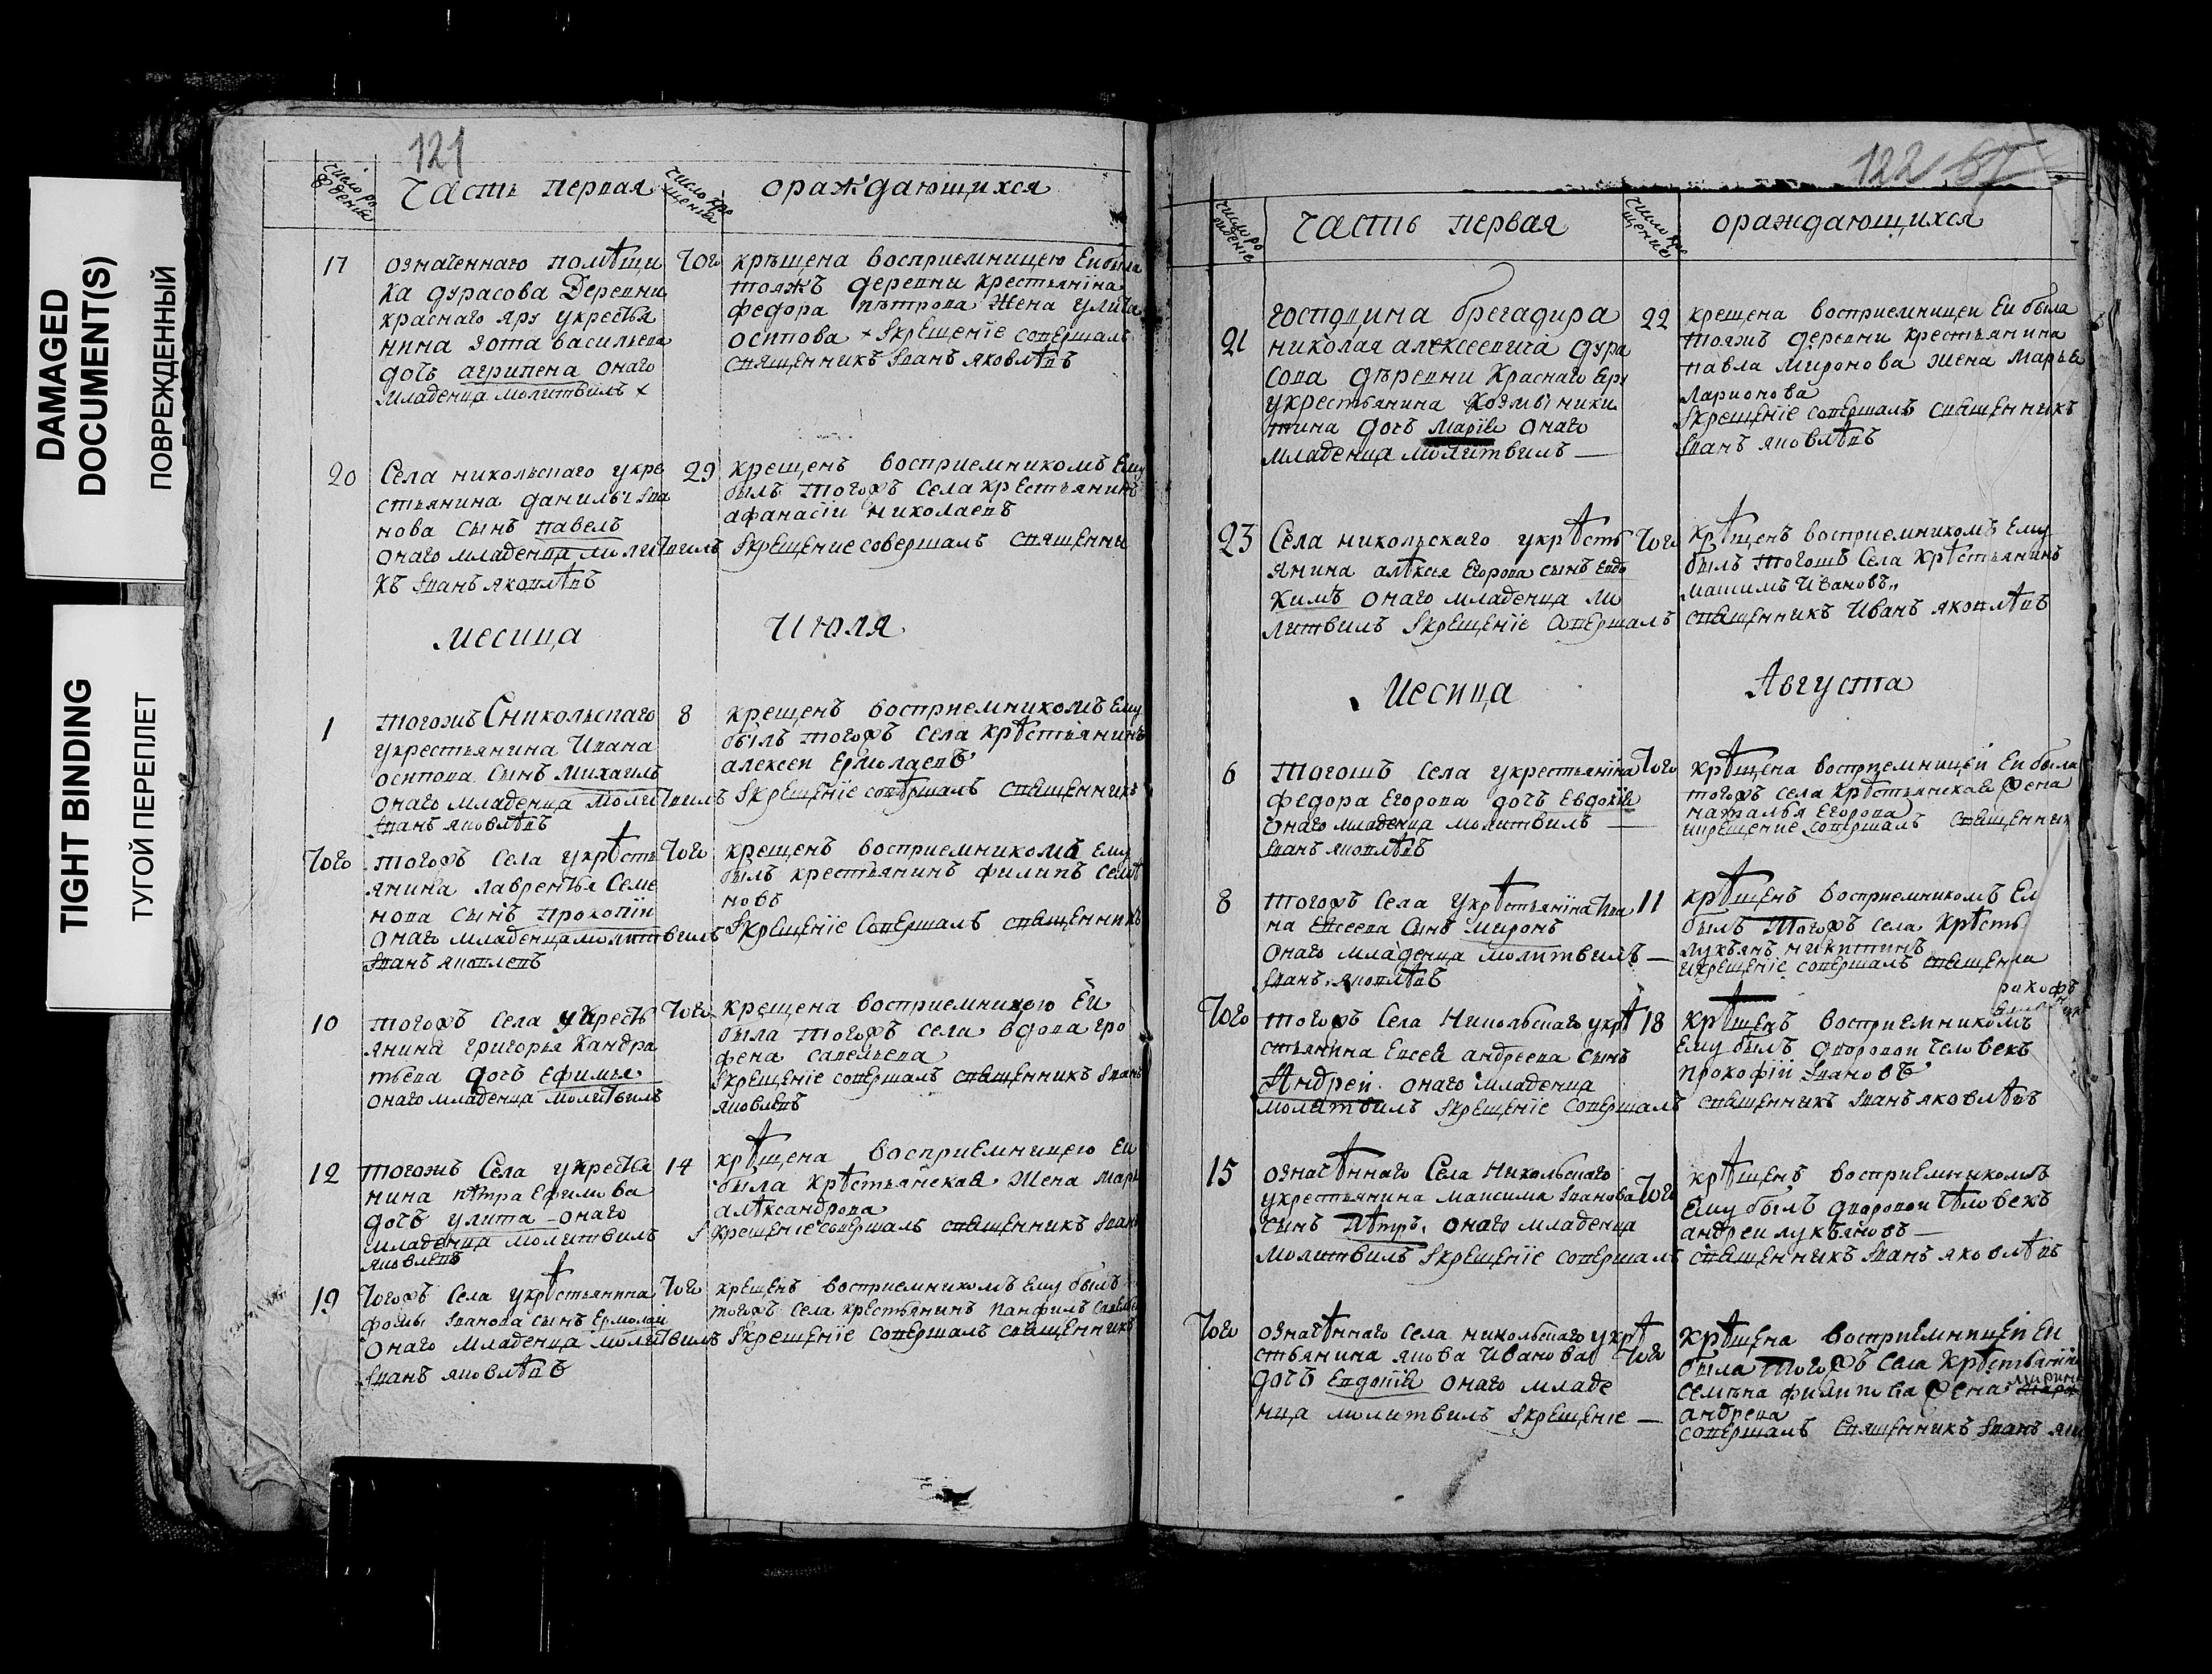 DAMAGED
DOCUMENT(S)
ПОВРЕЖДЕННЫЙ
TIGHT BINDING
ТУГОЙ ПЕРЕПЛЕТ
121
число ро
ждения
Часть первая
число кре
щения
ораждающихся
17
означеннаго помѣщи
ка дурасова Деревни
краснаго яру укрестья
нина зота васильева
дочь агрипена онаго
младенца молитвилъ +
того
крѣщена восприемницею Ей была
тояжъ деревни крестьянїна
федора пѣтрова Жена улита
осипова + Iкрещенїе совершалъ
священникъ Iванъ яковлѣвъ
20
Села никольскаго укре
стьянина данилы Iва
нова сынъ павелъ
онаго младенца молитвилъ
29
крещенъ восприемникомъ Ему
былъ тогожъ села крестьянинъ
афанасiи николаевъ
Iкрещение совершалъ священни
къ Iванъ яковлѣвъ
месица Июля
1
тогожъ С никольскаго
укрестьянина Ивана
осипова сынъ михаилъ
онаго младенца молитвилъ
8
крещенъ восприемникомъ Ему
былъ тогожъ села крѣстьянинъ
алексеи Ермолаевъ
Iкрещенїе совѣршалъ священникъ
Iванъ яковлѣвъ
того
тогожъ села укрѣсть
янина лаврентья Семе
нова сынъ прокопїи
онаго младенца молитвилъ
того
крещенъ восприемникомъ ему
былъ крестьянинъ филипъ семѣ
новъ
Iкрещенїе Совершалъ священникъ
Iванъ яковлевъ
10
тогожъ села укресть
янина григорья Кандра
тьева дочь ефимья
онаго младенца молитвилъ
того
крещена восприемницою Ей
была тогожъ села вдова гро
фена савельева
Iкрещенїе совершалъ священникъ Iванъ
яковлевъ
12
тогожъ Села укрестья
нина пѣтра Ефимова
дочь улита онаго
младенца молитвилъ
14
крѣщена восприемницею Ей
была крѣстьянская Жена марь
алѣксандрова
Iкрещенїе совершалъ священникъ Iванъ
яковлевъ
19
тогожъ Села укрѣстьянина
фомы Iванова сынъ Ермолаи
онаго младенца молитвилъ
того
крещенъ восприемникомъ Ему былъ
тогожъ села крестьянинъ панфилъ савелье
Iкрещенїе совершалъ священникъ
Iванъ яковлѣвъ
122
число ро
ждение
часть первая
число кре
щение
ораждающихся
21
господина брегадира
николая алексеевича дура
сова дѣревни Краснаго Яру
укрестьянина козмы ники
тина дочь марïя онаго
младенца молитвилъ
22
крещена восприемницеи Ей была
тояжъ деревни крестьянина
павла миронова жена марья
ларионова
Iкрещенїе совершалъ священникъ
Iванъ яковлѣвъ
23
Села никольскаго укрѣсть
янина алѣксѣя Егорова сынъ Евдо
кимъ онаго младенца мо
литвилъ Iкрещенїе Совершалъ
того
крѣщенъ восприемникомъ Ему
былъ тогожъ Села крѣстьянинъ
максимъ Ивановъ
священникъ Иванъ яковлѣвъ
Месица Августа
6
тогожъ села укрестьянїна
федора Егорова дочь Евдокїя
онаго младенца молитвилъ
того
крѣщена восприемницей Ей была
тогожъ села крѣстьянская жена
наталья Егорова
икрещение совершалъ священник
Iванъ яковлѣвъ
8
тогожъ села укрѣстьянїна Ива
на Евсеева Сынъ миронъ
онаго младенца молитвилъ
11
крѣщенъ восприемникомъ Ем
былъ тогожъ села крѣсть
лукьянъ никитинъ
икрещенїе совершалъ священни
Iванъ яковлѣвъ
того
тогожъ Села Никольскаго укрѣ
стьянина Евсея андреева сынъ
Андреи онаго младенца
молитвилъ Iкрещенїе совершалъ
18
крѣщенъ восприемникомъ
ему былъ дворовои человекъ
прокофїи Iвановъ
священникъ Iванъ яковлѣвъ
15
означѣннаго Села Никольскаго
укрестьянина максима Iванова
сынъ пѣтръ онаго младенца
молитвилъ Iкрещенїе совершалъ
того
крѣщенъ восприемникомъ
ему былъ дворовои чѣловекъ
андреи лукьяновъ
священникъ Iванъ яковлѣвъ
того
означѣннаго села никольскаго укрѣ
стьянина якова Иванова
дочь Евдокїя онаго младе
нца молитвилъ Iкрещенїе
того
крѣщена восприемницей Ей
была тогожъ села крѣстьянїн
семѣна филипова жена
андрева
совершалъ священникъ Iванъ яко